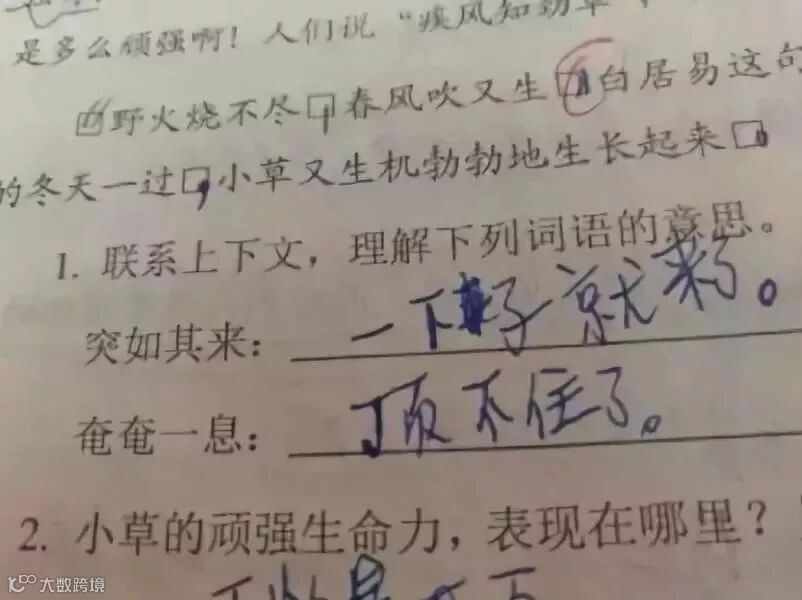 是多么顽强啊！人们说“疾风知劲草”，
“野火烧不尽，春风吹又生”白居易这句
的冬天一过，小草又生机勃勃地生长起来，
1. 联系上下文，理解下列词语的意思。
突如其来：一下子就来了。
奄奄一息：顶不住了。
2. 小草的顽强生命力，表现在哪里？
大数跨境